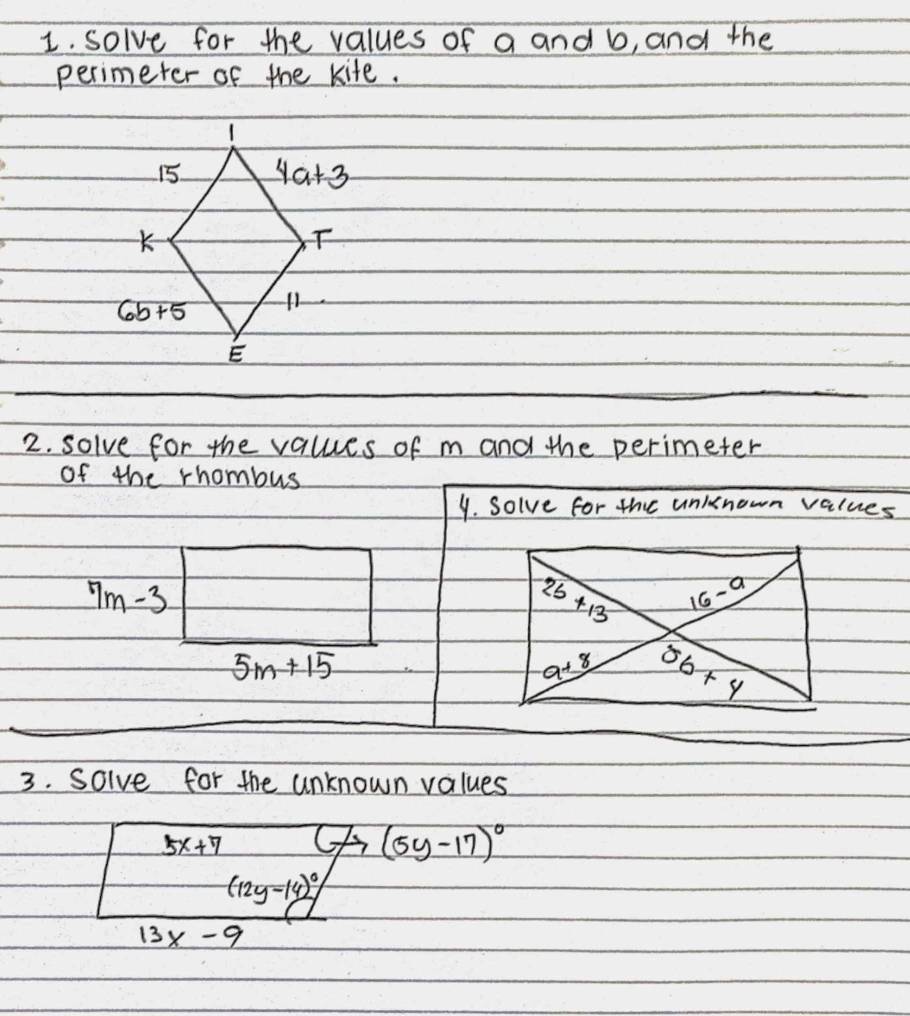 1. solve for the values of a and b, and the
perimeter of the kite.
I
15
4a+3
K
T
6b+5
11
E
2. solve for the values of m and the perimeter
of the rhombus
7m-3
5m+15
4. solve for the unknown values
16-a
a+8
3. solve for the unknown values
5x+7
(5y-17)°
(12y-14)°
13x-9